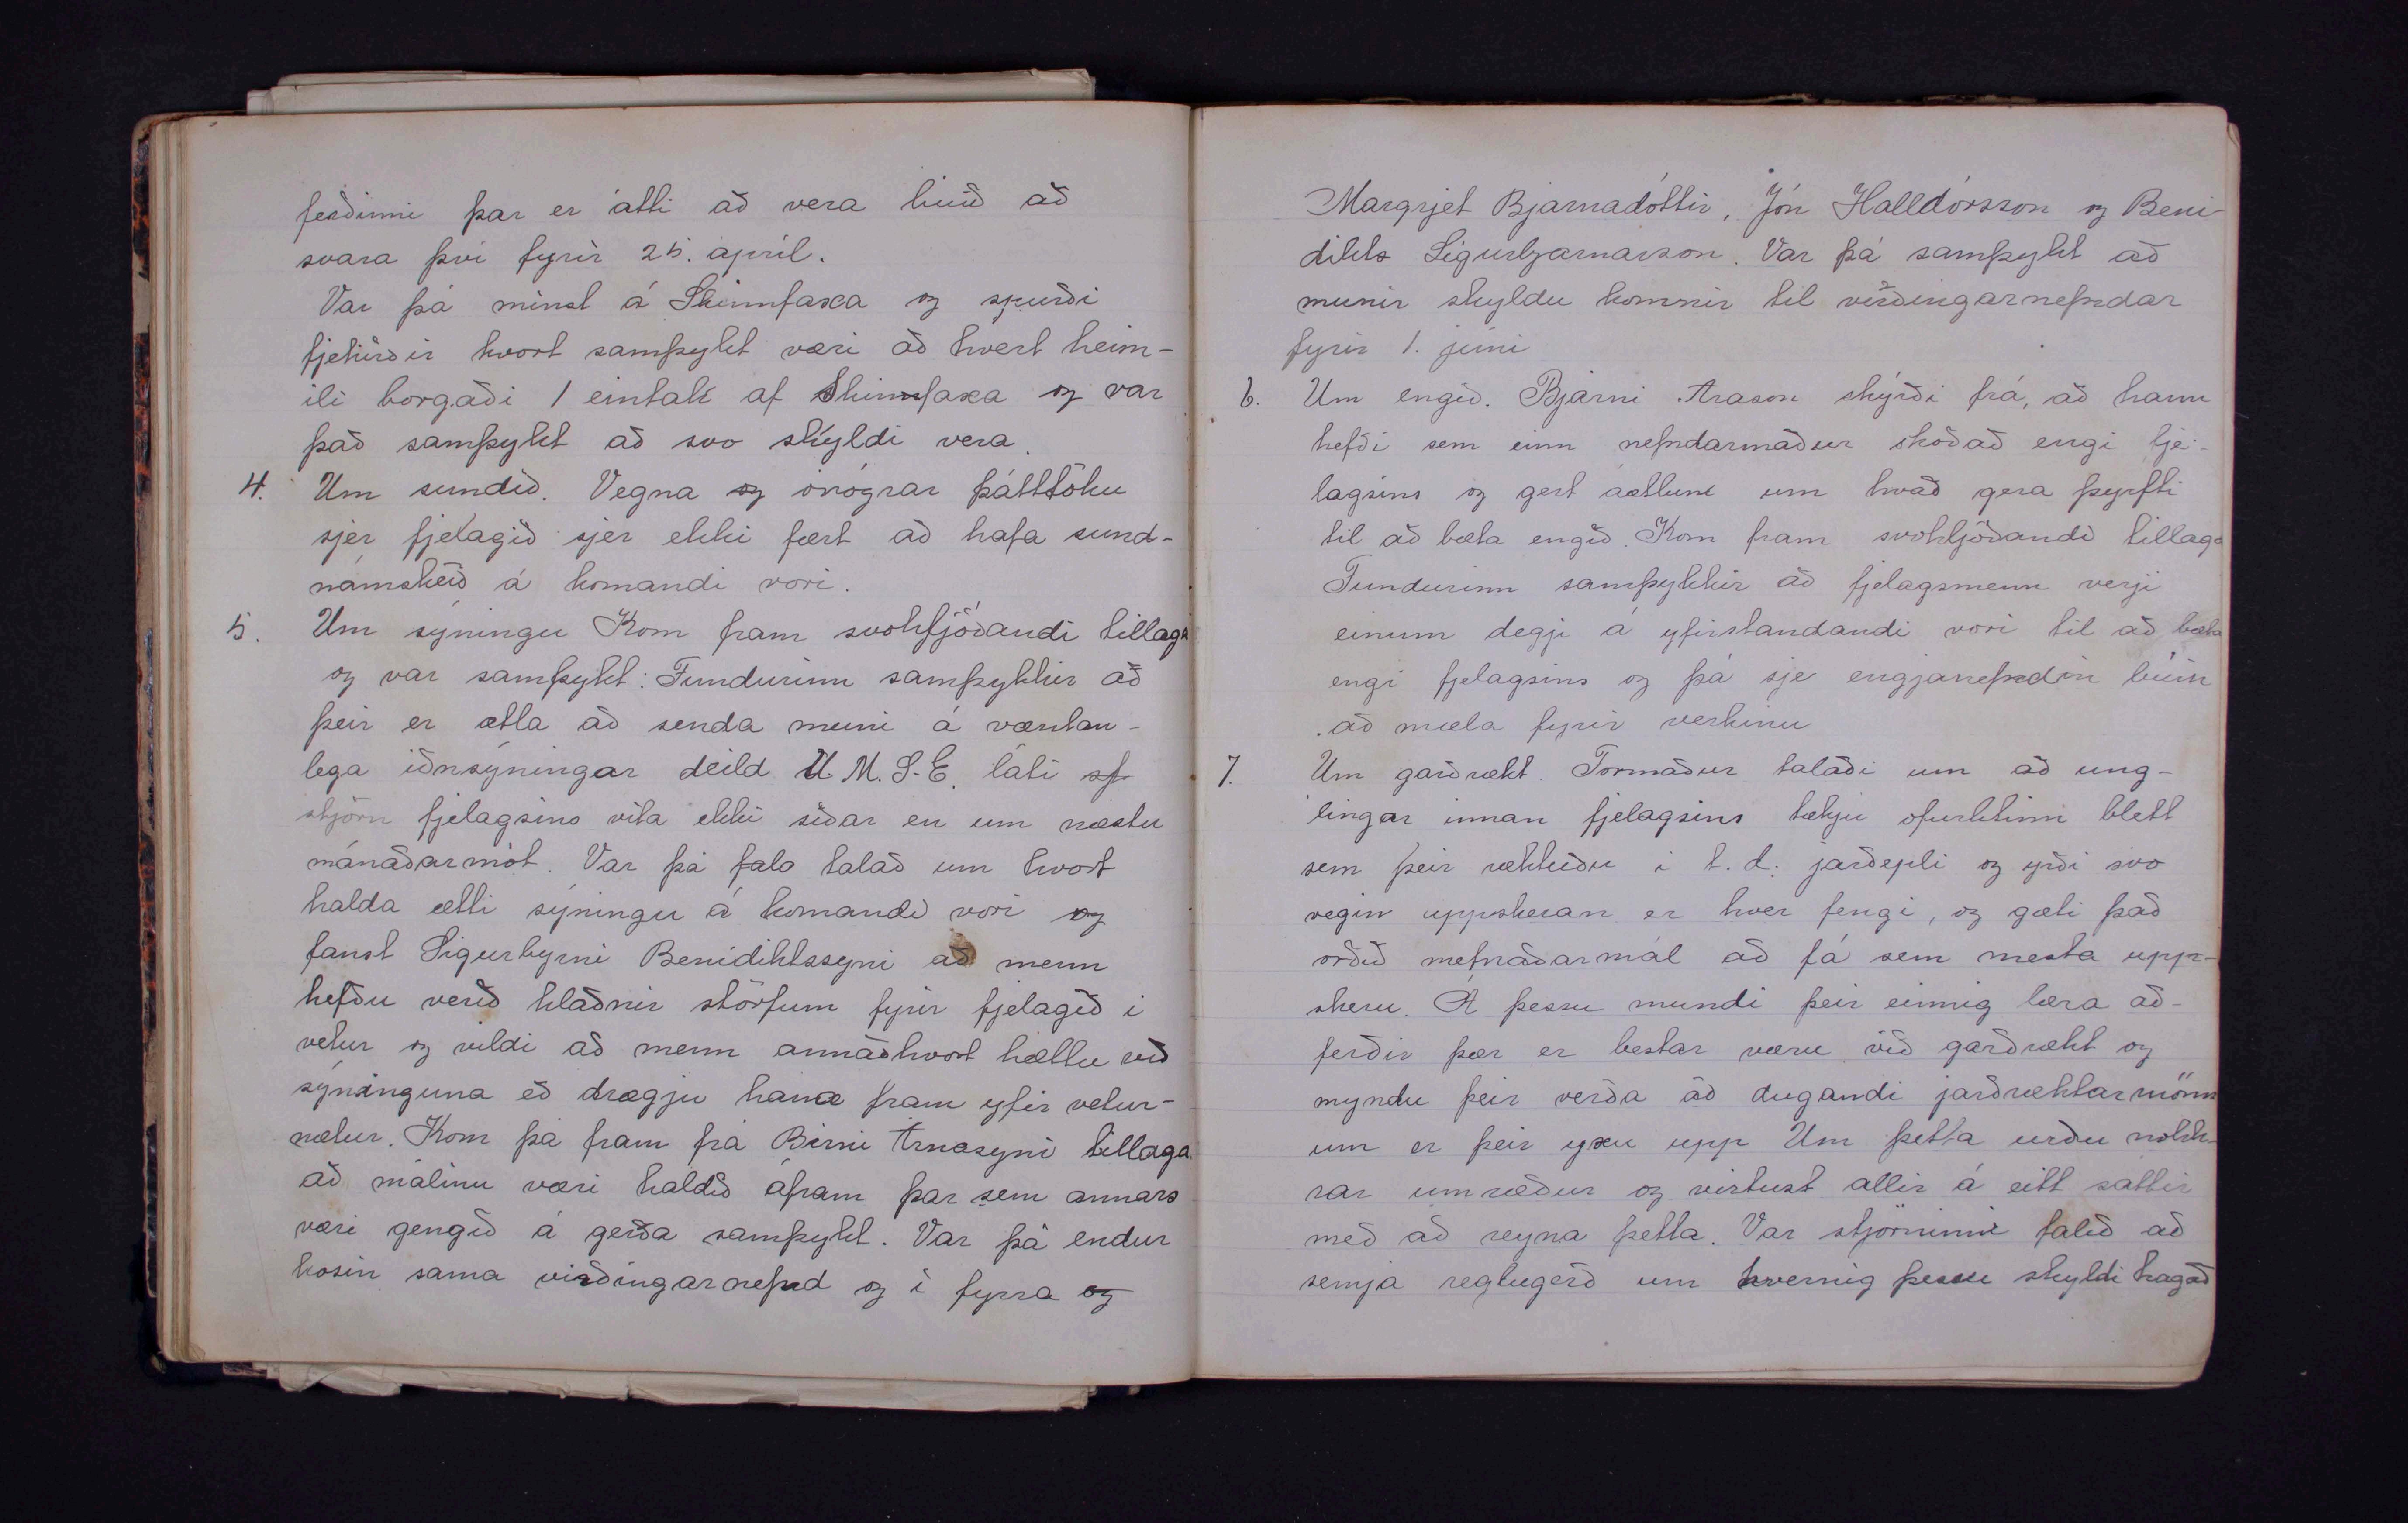 ferðinni þar er átti að vera búið að
svara því fyrir 25. apríl.
Var þá minst á Skinnfaxa og spurði
fjehirðir hvort samþykt væri að hvert heim-
ili borgaði 1 eintak af Skinnfaxa og var
það samþykt að svo skyldi vera.
4. Um sundið. Vegna og ónógrar þátttöku
sjer fjelagið sjer ekki fært að hafa sund-
námskeið á komandi vori.
5. Um sýningu Kom fram svohljóðandi tillaga
og var samþykt: Fundurinn samþykkir að
þeir er ætla að senda muni á væntan-
lega iðnsýningar deild U.M.S.E. láti sf
stjórn fjelagsins vita ekki síðar en um næstu
mánaðarmót. Var þá talo talað um hvort
halda ætti sýningu á komandi vori og
fanst Sigurbyrni Benidiktssyni að menn
hefðu verið hlaðnir störfum fyrir fjelagið í
vetur og vildi að menn annaðhvort hættu við
sýninguna eð drægju hana fram yfir vetur-
nætur. Kom þá fram frá Birni Arnasyni tillaga
að málinu væri haldið áfram þar sem annars
væri gengið á gerða samþykt. Var þá endur
kosin sama virðingarnefnd og í fyrra og
Margrjet Bjarnadóttir, Jón Halldórsson og Beni-
dikts Sigurbjarnarson. Var þá samþykt að
munir skyldu komnir til virðingarnefndar
fyrir 1. júni
6. Um engið. Bjarni Arason skýrði frá, að hann
hefði sem einn nefndarmaður skoðað engi fje-
lagsins og gert áætlun um hvað gera þyrfti
til að bæta engið. Kom fram svohljóðandi tillaga
Fundurinn samþykkir að fjelagsmenn verji
einum degji á yfirstandandi vori til að bæta
engi fjelagsins og þá sje engjanefndin búin
að mæla fyrir verkinu
7. Um garðrækt. Formaður talaði um að ung-
lingar innan fjelagsins tækju ofurlitinn blett
sem þeir ræktuðu í t.d. jarðepli og yrði svo
vegin uppskeran er hver fengi, og gæti það
orðið metnaðarmál að fá sem mesta upp-
skeru. A þessu mundi þeir einnig læra að-
ferðir þær er bestar væru við garðrækt og
myndu þeir verða að dugandi jarðræktarmönn
um er þeir yxu upp Um þetta urðu nokk-
rar umræður og virtust allir á eitt sáttir
með að reyna þetta. Var stjórninni falið að
semja reglugerð um hvernig þessu skyldi hagað